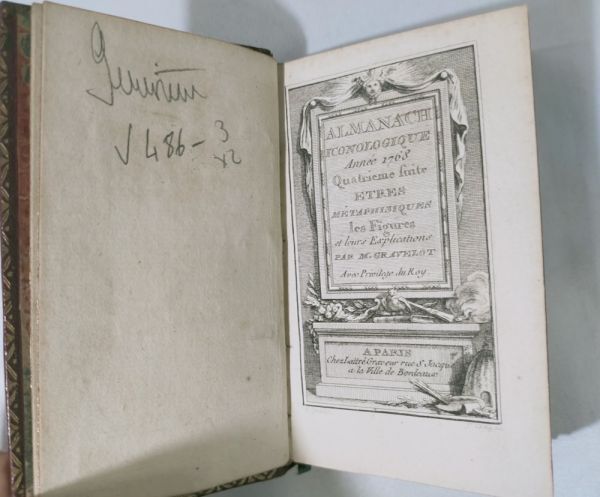 √ 486 - 3
ALMANACH
ICONOLOGIQUE
Année 1768
Quatrieme suite
ETRES
METAPHISIQUES
les Figures
et leurs Explications
PAR M. GRAVELOT
Avec Privilege du Roy
A PARIS
Chez Lattré Graveur rue S. Jacque
a la Ville de Bordeaux